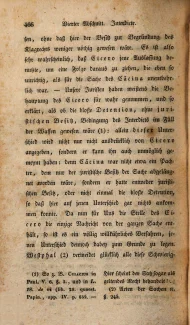 466 Vierter Abschnitt. Interdicte.
sen, ohne daß hier der Besitz zur Begründung des
Klagrechts weniger nöthig gewesen wäre. Es ist also
sehr wahrscheinlich, daß Cicero jene Auslassung be-
merkte, um eine Folge daraus zu ziehen, die eben so
unrichtig, als für die Sache des Cäcina unentbehr-
lich war. — Unsere Juristen haben meistens die Be-
hauptung des Cicero für wahr genommen, und er-
klärt, als ob die bloße Detention, ohne ju-
ristischen Besitz, Bedingung des Interdicts im Fall
der Waffen gewesen wäre (1): allein dieser Unter-
schied wird nicht nur von Cicero
angegeben, sondern er kann ihn auch unmöglich ge-
meynt haben: denn Cäcina war nicht etwa ein Päch-
ter, dem nur der juristische Besitz der Sache abgeläug-
net werden konnte, sondern er hatte entweder juristi-
schen Besitz, oder nicht einmal die bloße Detention,
so daß auf jenen Unterschied gar nichts ankom-
men konnte. Da nun für uns die Stelle des Ci-
cero die einzige Nachricht von der ganzen Sache ent-
hält, so ist es ein völlig willkührliches Verfahren, je-
nen Unterschied dennoch dabey zum Grunde zu legen.
Westphal (2) vermeidet glücklich alle diese Schwierig-
(1) So z. B. Cujacius in
Paul.
Papin., opp. IV. p. 
hier scheint
geltendes Recht behandelt!
(2) Arten der Sachen
§. 245.